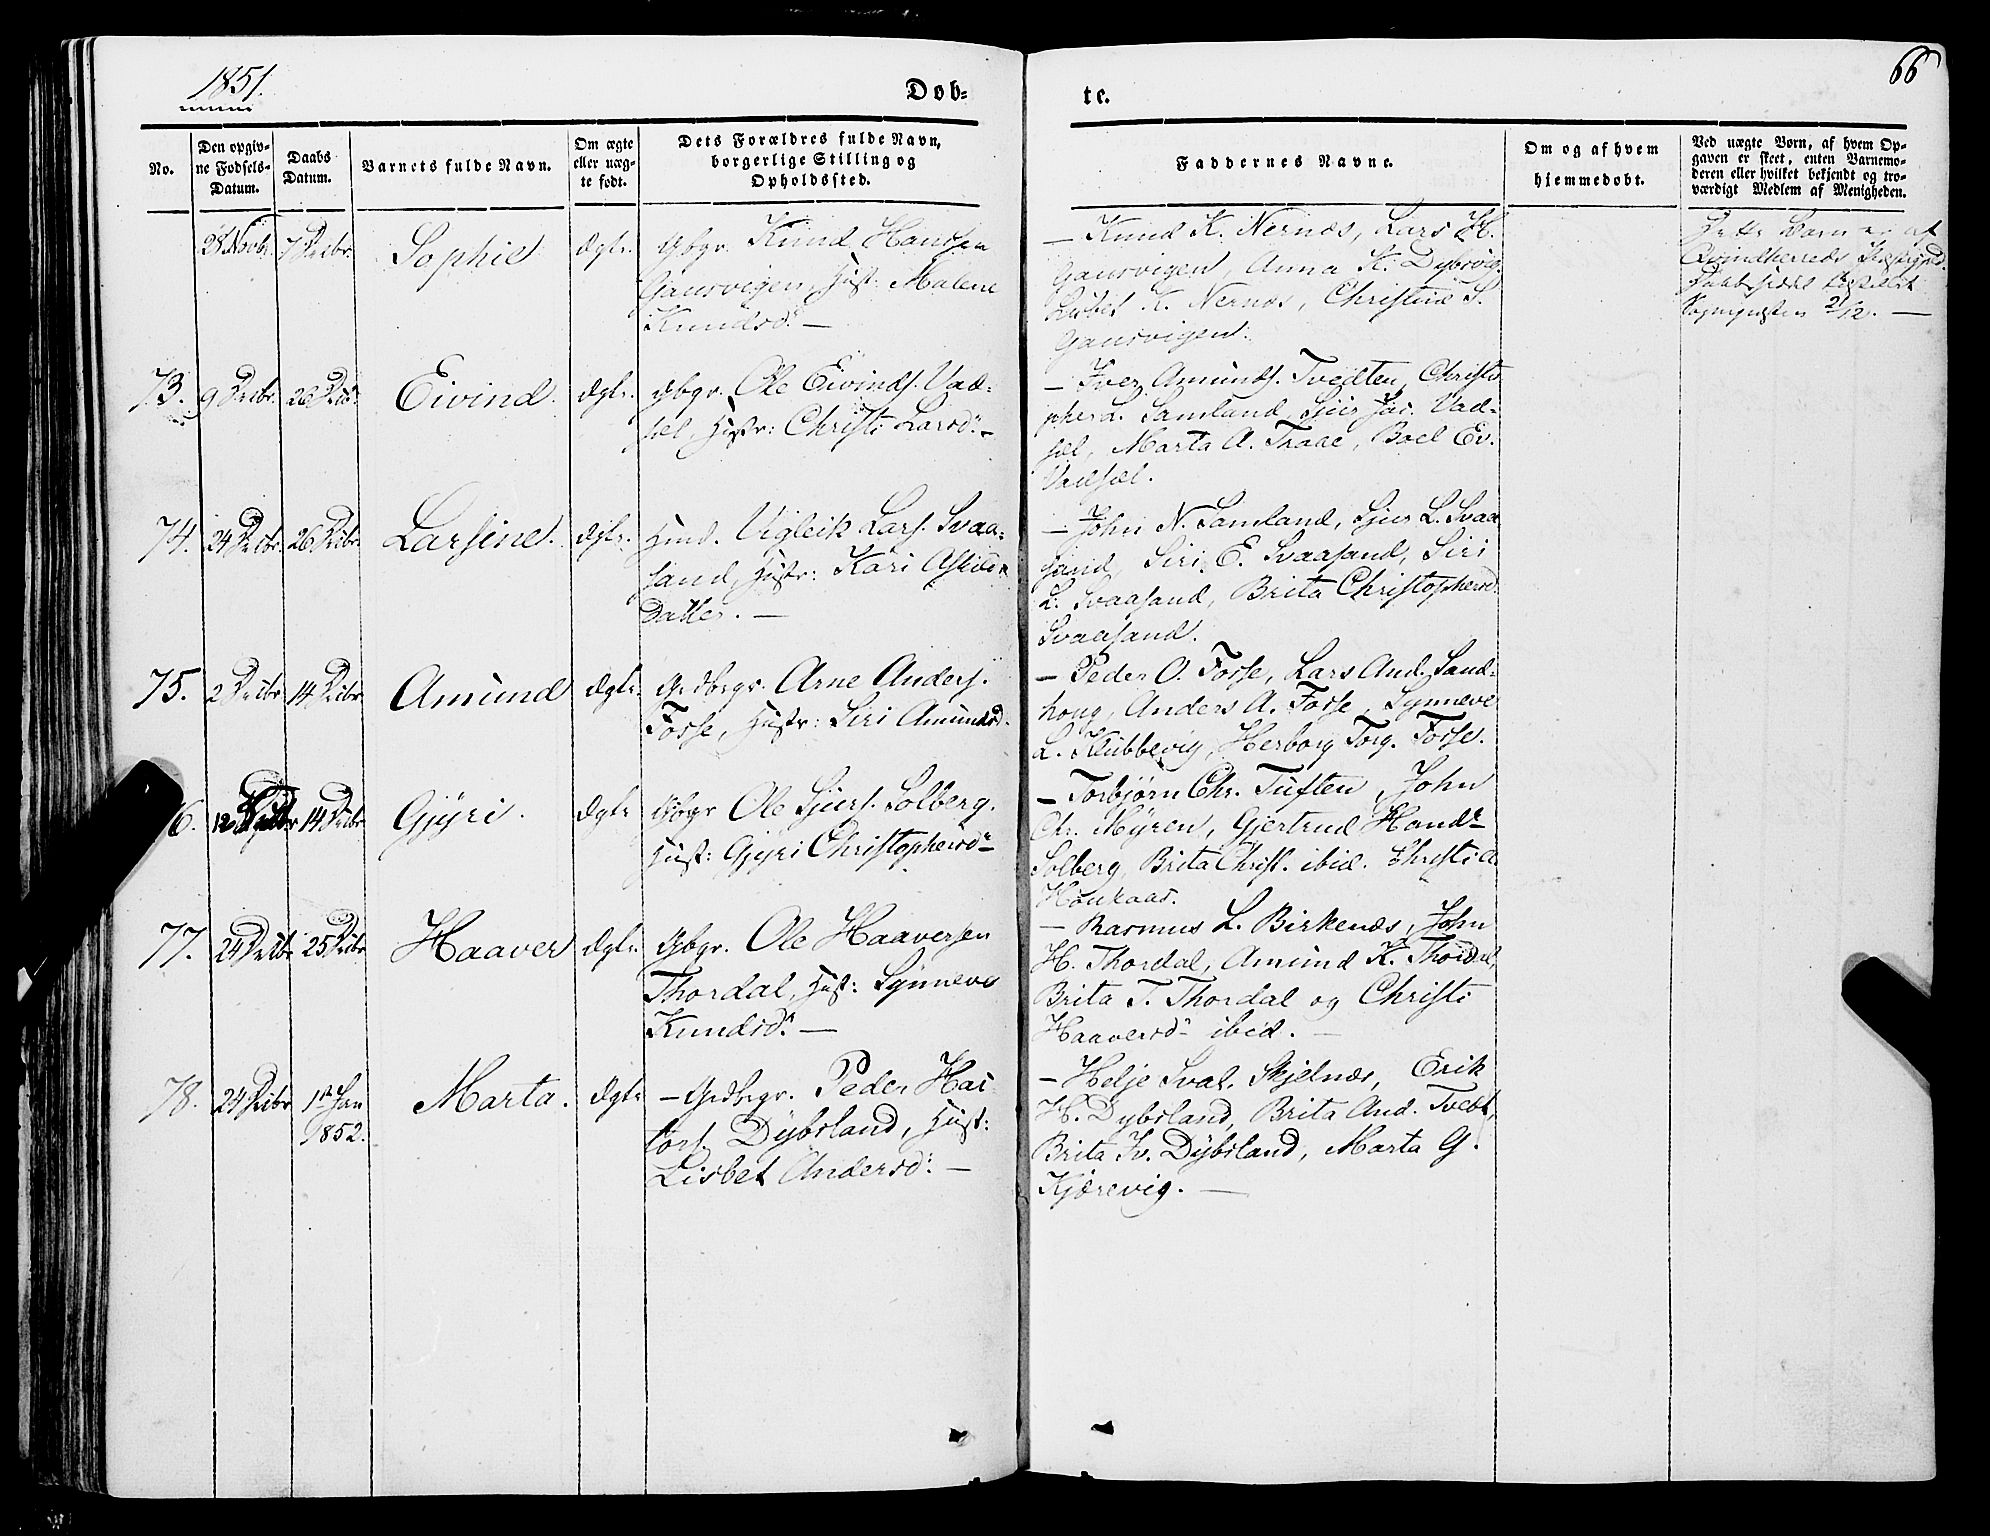 1851.
Døb-
te.
66
No.
Den opgiv-
ne Fødsels-
Datum.
Daabs
Datum.
Barnets fulde Navn.
Om ægte
eller uæg-
te født.
Dets Forældres fulde Navn,
borgerlige Stilling og
Opholdssted.
Faddernes Navne.
Om og af hvem
hjemmedøbt.
Ved uægte Børn, af hvem Op-
gaven er skeet, enten Barnemo-
deren eller hvilket bekjendt og tro-
værdigt Medlem af Menigheden.
28 Novbr. 7 Decbr. Sophie Ægte.
Gbgr. Knud Hansen
Gausvigen, Hust: Malene
Knudsdr. —
— Knud K. Nernæs, Lars H.
Gausvigen, Anna K. Dybsvig,
Lisbet K. Nernæs, Christine S.
Gausvigen.
Dette Barn er af
Qvindherreds Præstegjeld.
Sognepræsten 2/12. —
73. 9 Decbr. 26 Decbr. Eivind. Ægte.
Gbgr. Ole Eivinds. Vad-
sel, Hustr: Christi Larsdr. —
— Iver Amunds. Tvedten, Christo
pher L. Samland, Sjur Jac. Vad-
sel, Marta A. Traae, Boel Ev.
Vadsel.
74. 24 Decbr. 26 Decbr. Larsine. Ægte.
Huusmd. Vigleik Lars. Svaa-
sand, Hustr: Kari Askilds
Datter. —
— John N. Samland, Sjur L. Svaa
sand, Siri E. Svaasand, Siri
L. Svaasand, Brita Christophersd.
Svaasand.
75. 2 Decbr. 14 Decbr. Amund Ægte.
Grdbrgr. Arne Anders.
Fosse, Hustr: Siri Amundsd.
— Peder O. Fosse, Lars And. Sand-
houg, Anders A. Fosse, Synneve
L. Klubbevig, Herborg Torg. Fosse.
6. 12 Decbr 14 Decbr Gjyri. Ægte
Gbgr Ole Sjurs. Solberg.
Hust: Gjyri Christophersdr.
— Torbjørn Chr. Tuften, John
Chr. Myren, Gjertrud Hansdr.
Solberg, Brita Christ. ibid. Christi A.
Houkaas.
77. 24 Decbr 25 Decbr Haaver Ægte.
Gbgr. Ole Haaversen
Thordal, Hust: Synneve
Knudsdr. —
— Rasmus L. Birkenæs, John
H. Thordal, Amund K. Thordal,
Brita T. Thordal og Christi
Haaversdr. ibid. —
78. 24 Decbr 1ste Jan
1852. Marta. Ægte
— Grdbrgr. Peder Hac
tors. Dybsland, Hust:
Lisbet Andersd. —
— Helje Sval. Skjelnæs, Erik
H. Dybsland, Brita And. Tvedt,
Brita Iv. Dybsland, Marta G.
Kjærevig. —